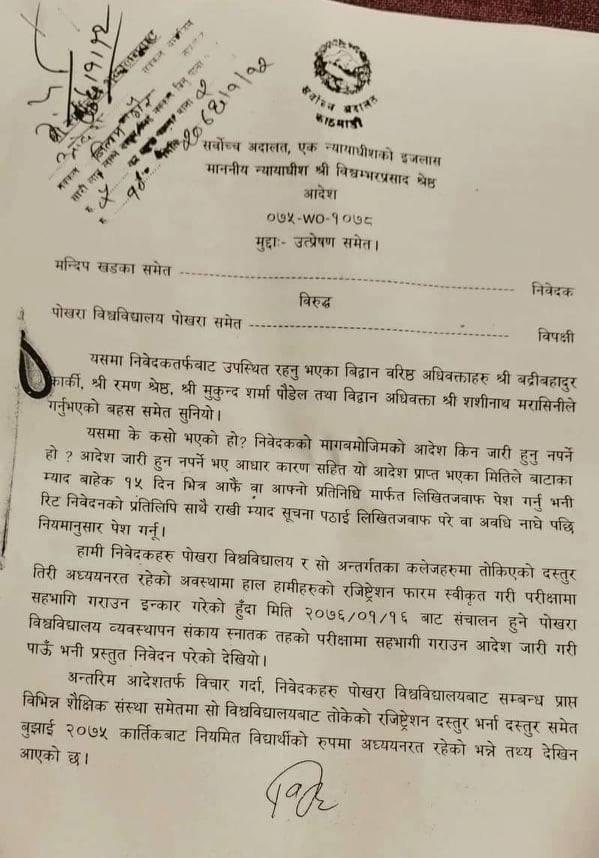 सर्वोच्च अदालत
काठमाडौं
सर्वोच्च अदालत, एक न्यायाधीशको इजलास
माननीय न्यायाधीश श्री विश्वम्भरप्रसाद श्रेष्ठ
आदेश
०७५-WO-१०७८
मुद्दाः- उत्प्रेषण समेत।
मन्दिप खडका समेत ------------------------------ निवेदक
विरुद्ध
पोखरा विश्वविद्यालय पोखरा समेत ------------------------------ विपक्षी
यसमा निवेदकतर्फबाट उपस्थित रहनु भएका बिद्वान वरिष्ठ अधिवक्ताहरु श्री बद्रीबहादुर
कार्की, श्री रमण श्रेष्ठ, श्री मुकुन्द शर्मा पौडेल तथा बिद्वान अधिवक्ता श्री शशीनाथ मरासिनीले
गर्नुभएको बहस समेत सुनियो।
यसमा के कसो भएको हो? निवेदकको मागबमोजिमको आदेश किन जारी हुनु नपर्ने
हो ? आदेश जारी हुन नपर्ने भए आधार कारण सहित यो आदेश प्राप्त भएका मितिले बाटाका
म्याद बाहेक १५ दिन भित्र आफै वा आफ्नो प्रतिनिधि मार्फत लिखितजवाफ पेश गर्नु भनी
रिट निवेदनको प्रतिलिपि साथै राखी म्याद सूचना पठाई लिखितजवाफ परे वा अवधि नाघे पछि
नियमानुसार पेश गर्नू।
हामी निवेदकहरु पोखरा विश्वविद्यालय र सो अन्तर्गतका कलेजहरुमा तोकिएको दस्तुर
तिरी अध्ययनरत रहेको अवस्थामा हाल हामीहरुको रजिष्ट्रेशन फारम स्वीकृत गरी परीक्षामा
सहभागि गराउन इन्कार गरेको हुँदा मिति २०७६/०१/१६ बाट संचालन हुने पोखरा
विश्वविद्यालय व्यवस्थापन संकाय स्नातक तहको परीक्षामा सहभागी गराउन आदेश जारी गरी
पाऊँ भनी प्रस्तुत निवेदन परेको देखियो।
अन्तरिम आदेशतर्फ विचार गर्दा, निवेदकहरु पोखरा विश्वविद्यालयबाट सम्बन्ध प्राप्त
विभिन्न शैक्षिक संस्था समेतमा सो विश्वविद्यालयबाट तोकेको रजिष्ट्रेशन दस्तुर भर्ना दस्तुर समेत
बुझाई २०७५ कार्तिकबाट नियमित विद्यार्थीको रुपमा अध्ययनरत रहेको भन्ने तथ्य देखिन
आएको छ।